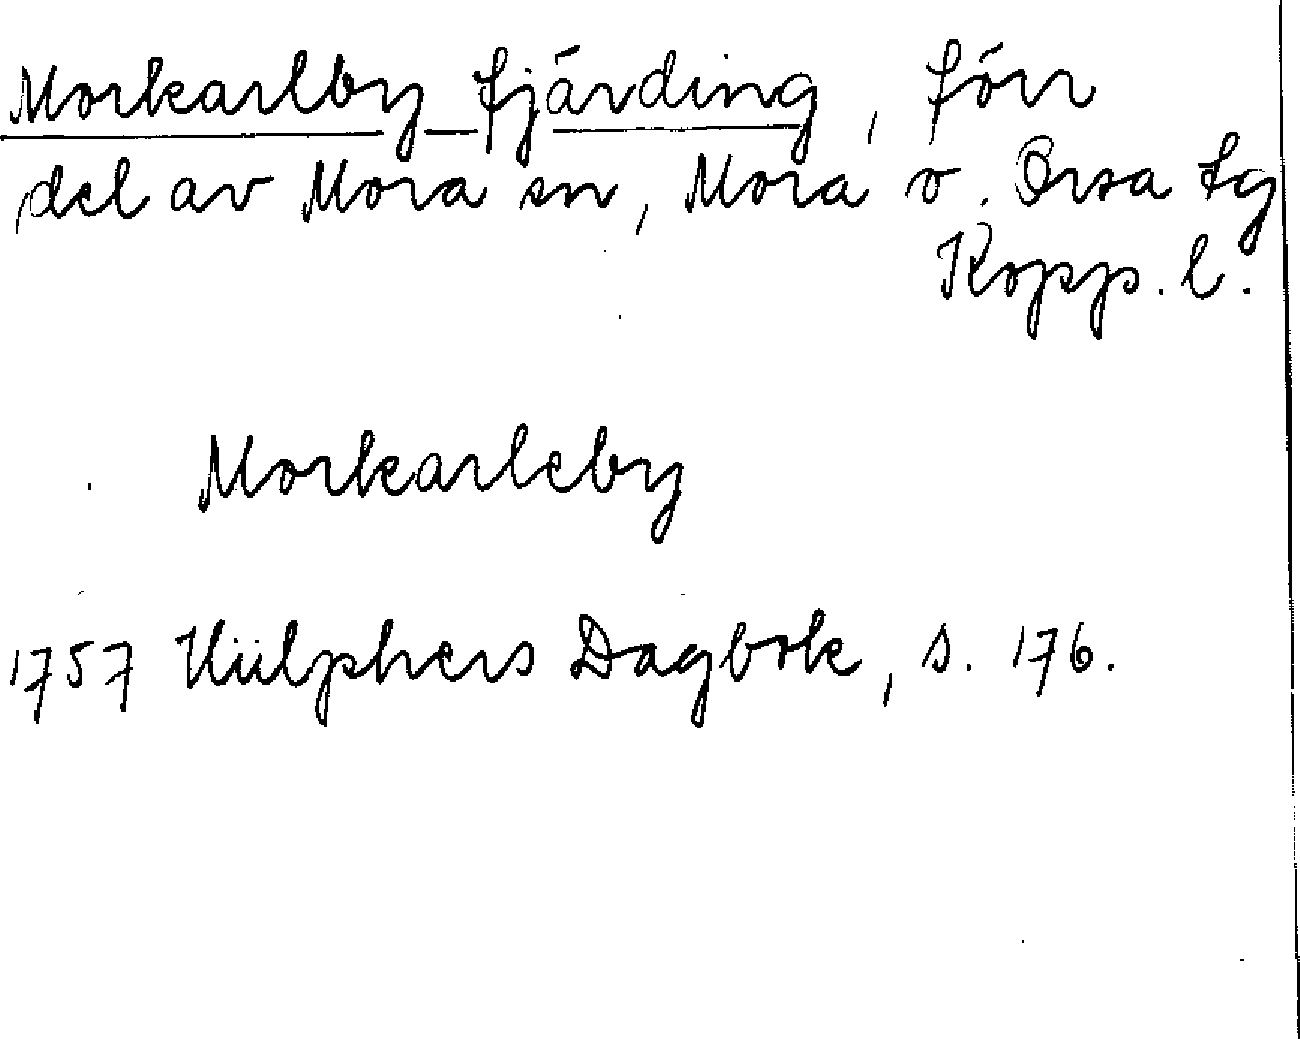 Morkarlby fjärding, förr
del av Mora sn, Mora o. Orsa tg
Kopp. l.
Morkarleby
1757 Hülphers Dagbok, s. 176.